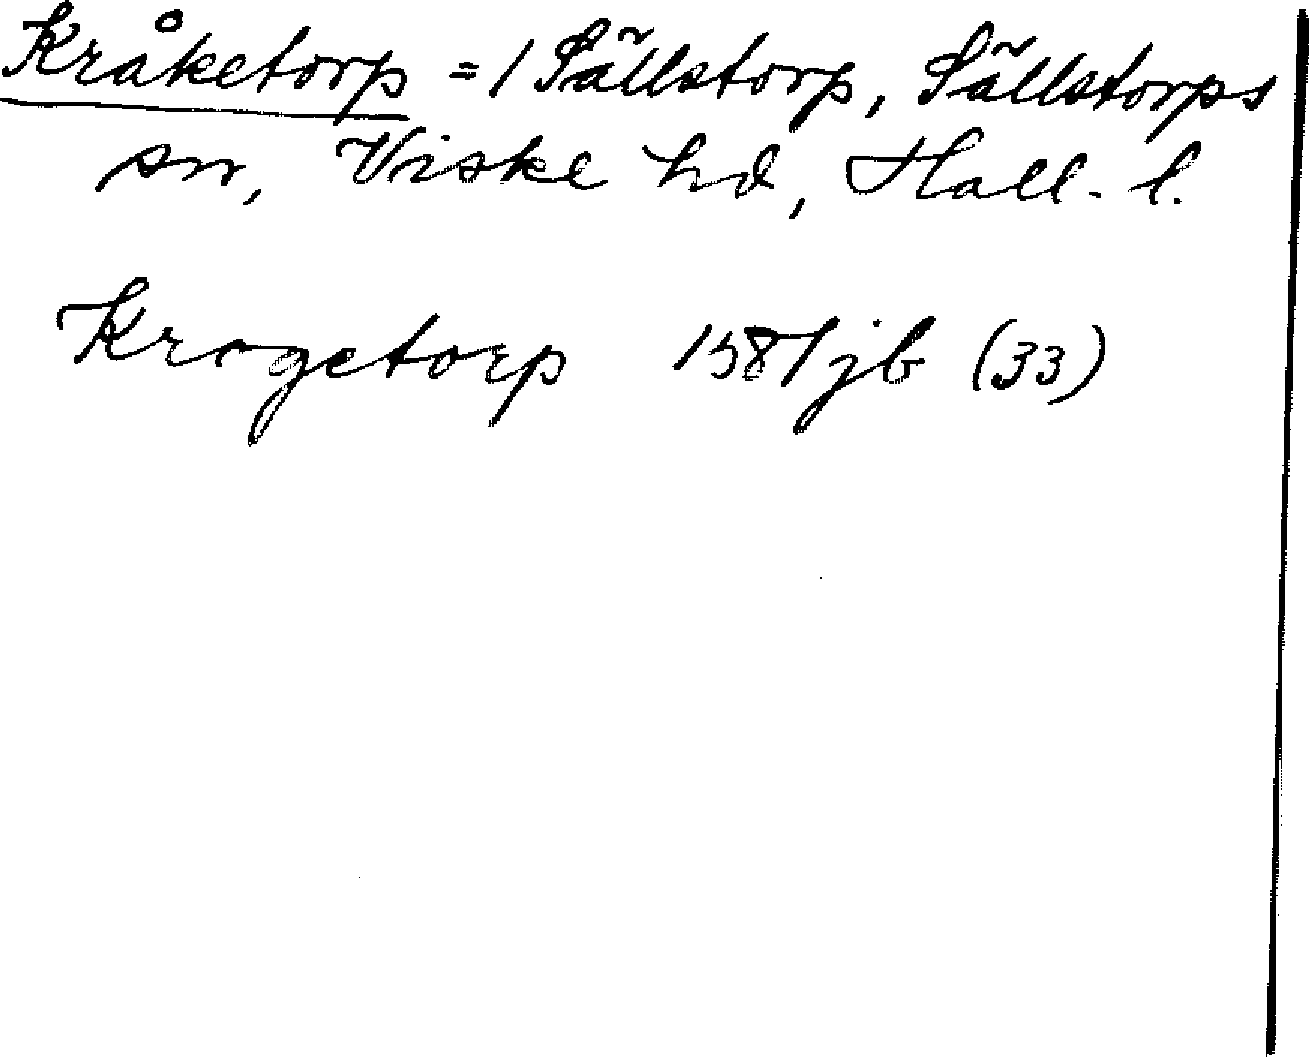 Kråketorp = 1 Sällstorp, Sällstorps
sn, Viske hd, Hall. l.
Krogetorp 1581 jb (33)